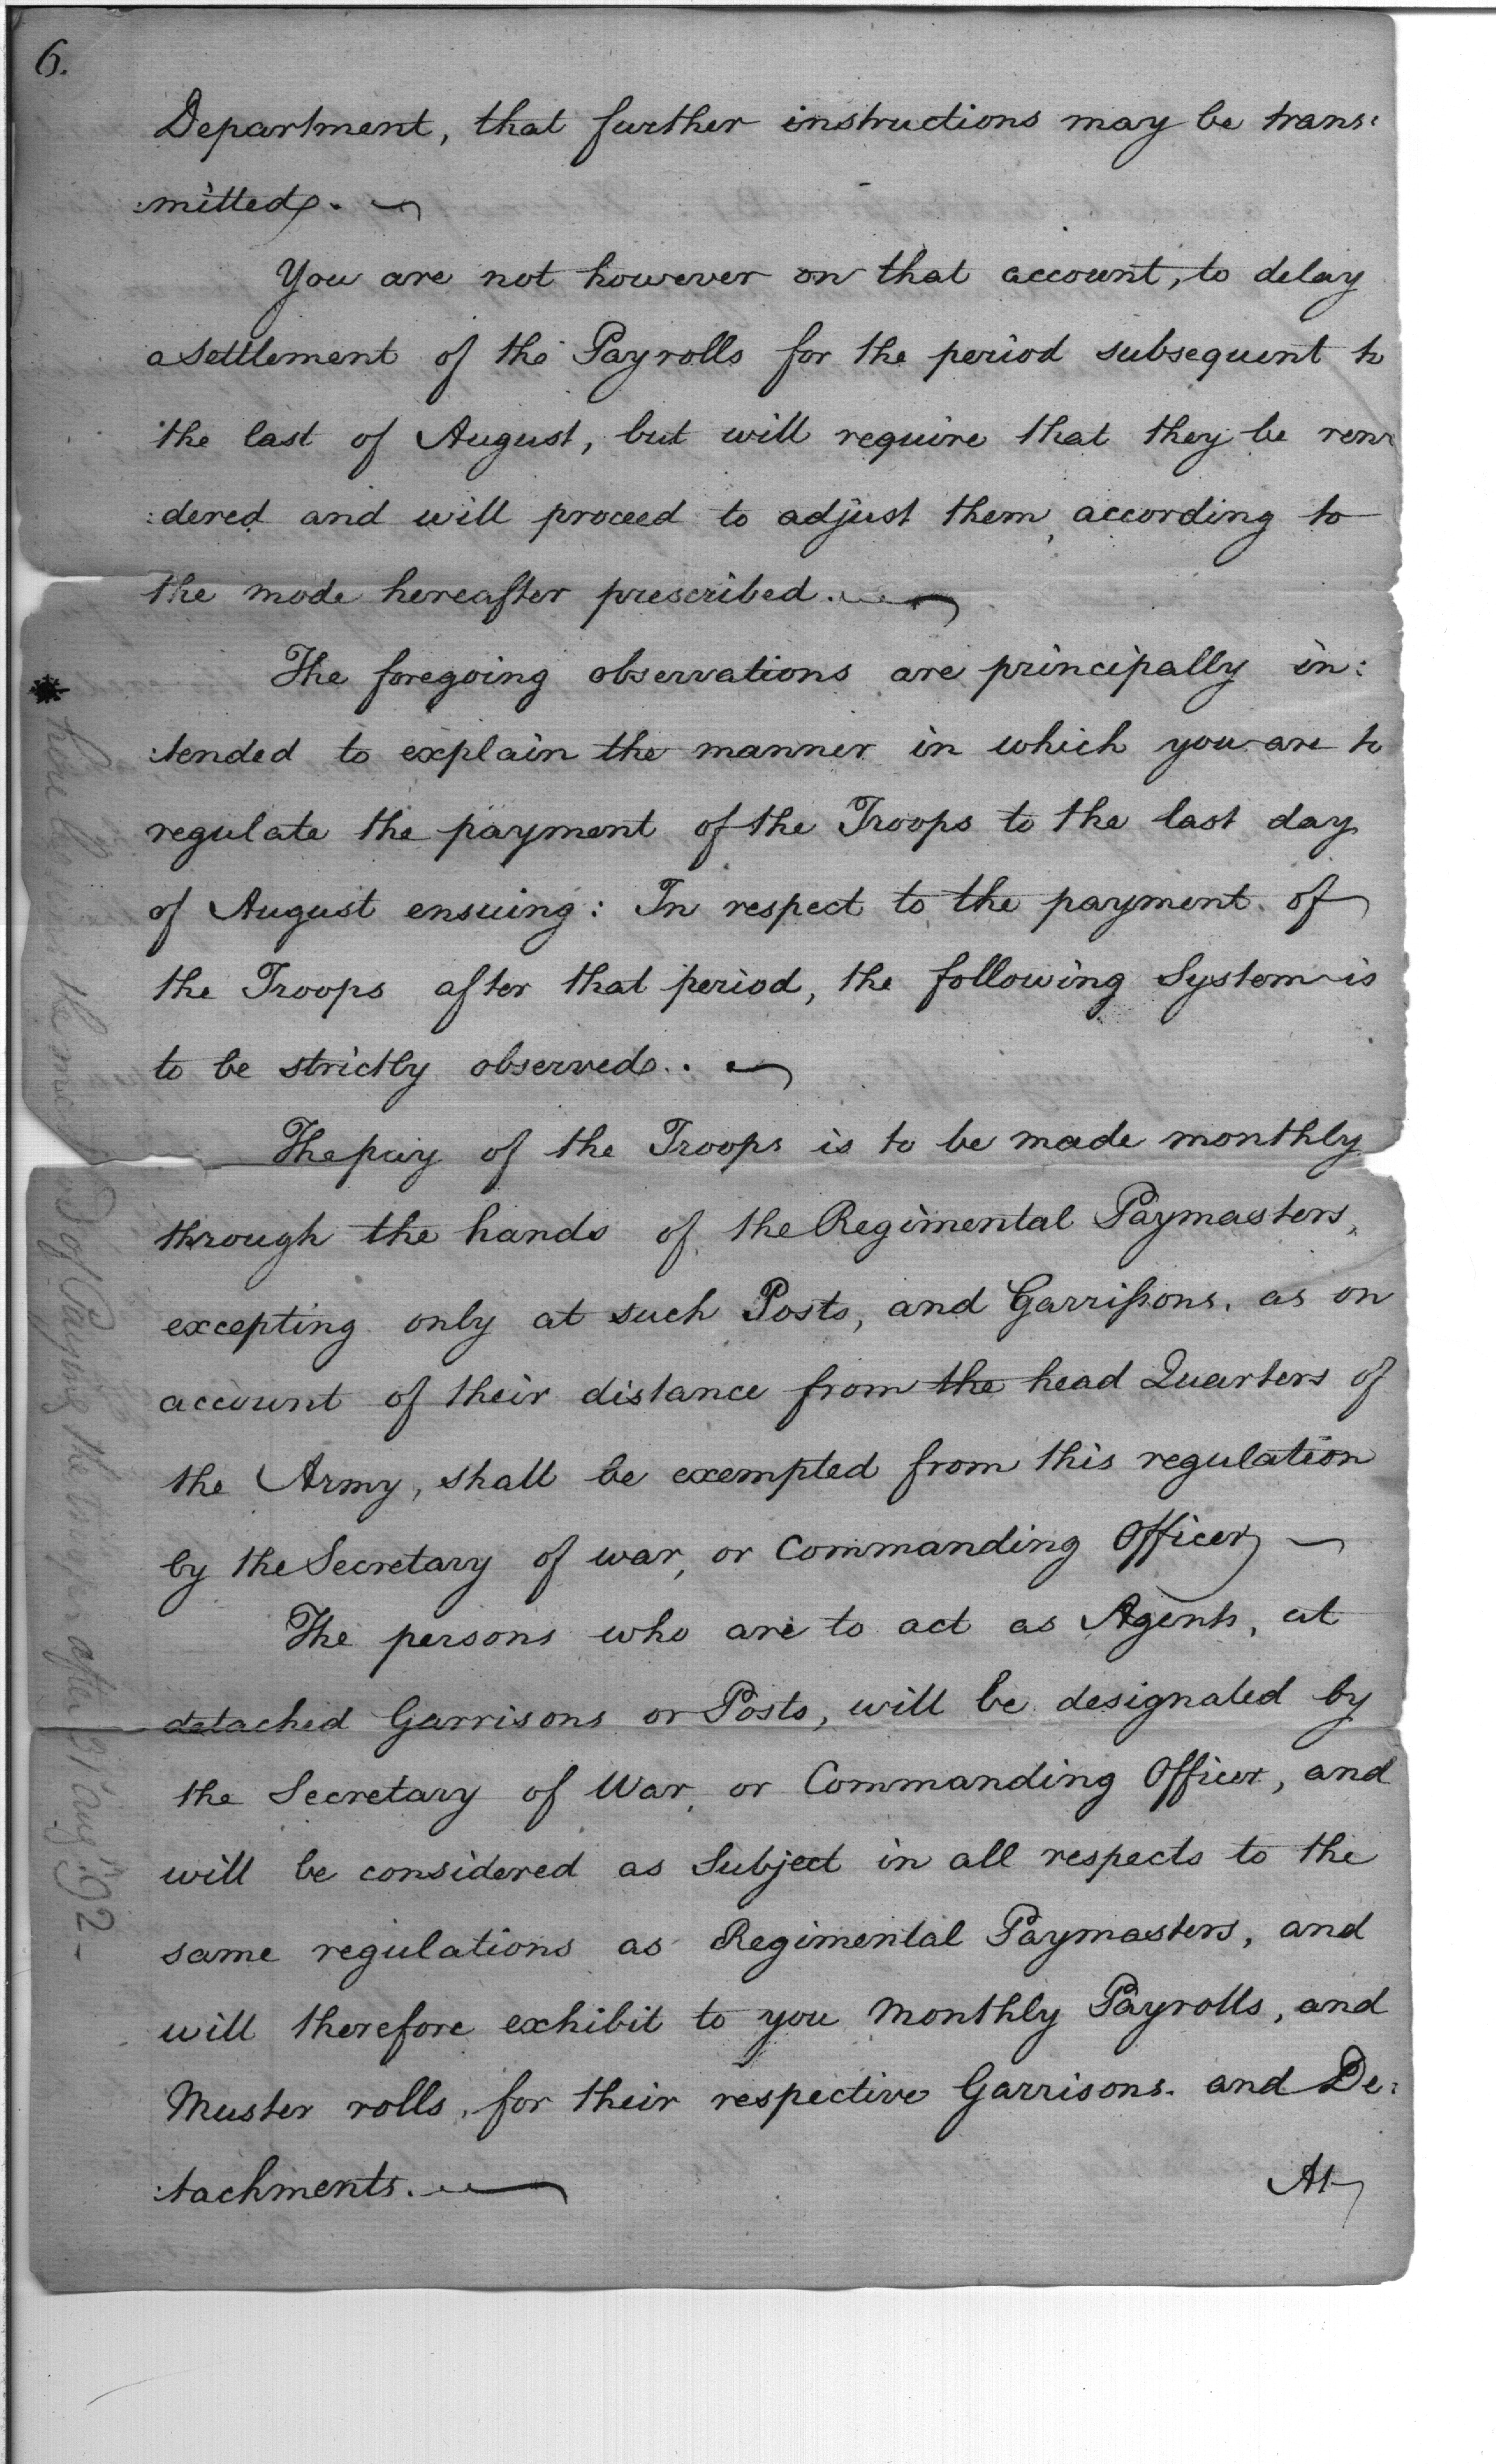 6.
Department, that further instructions may be trans:
:mitted. 
You are not however on that account, to delay
a Settlement of the Payrolls for the period subsequent to
the last of August, but will require that they be ren:
:dered and will proceed to adjust them, according to
the mode hereafter prescribed.
The foregoing observations are principally in:
:tended to explain the manner in which you are to
regulate the payment of the Troops to the last day
of August ensuing: In respect to the payment of
the Troops after that period, the following System is
to be strictly observed.
The pay of the Troops is to be made monthly
through the hands of the Regimental Paymasters,
excepting only at such Posts, and Garrisons, as on
account of their distance from the head Quarters of
the Army, shall be exempted from this regulation
by the Secretary of war, or Commanding Officer
The persons who are to act as Agents, at
detached Garrisons or Posts, will be designated by
the Secretary of War, or Commanding Officer, and
will be considered as Subject in all respects to the
same regulations as Regimental Paymasters, and
will therefore exhibit to you monthly Payrolls, and
Muster rolls, for their respective Garrisons and De:
:tachments.
At
* the
of Paying the troops after 31 Aug. 92-